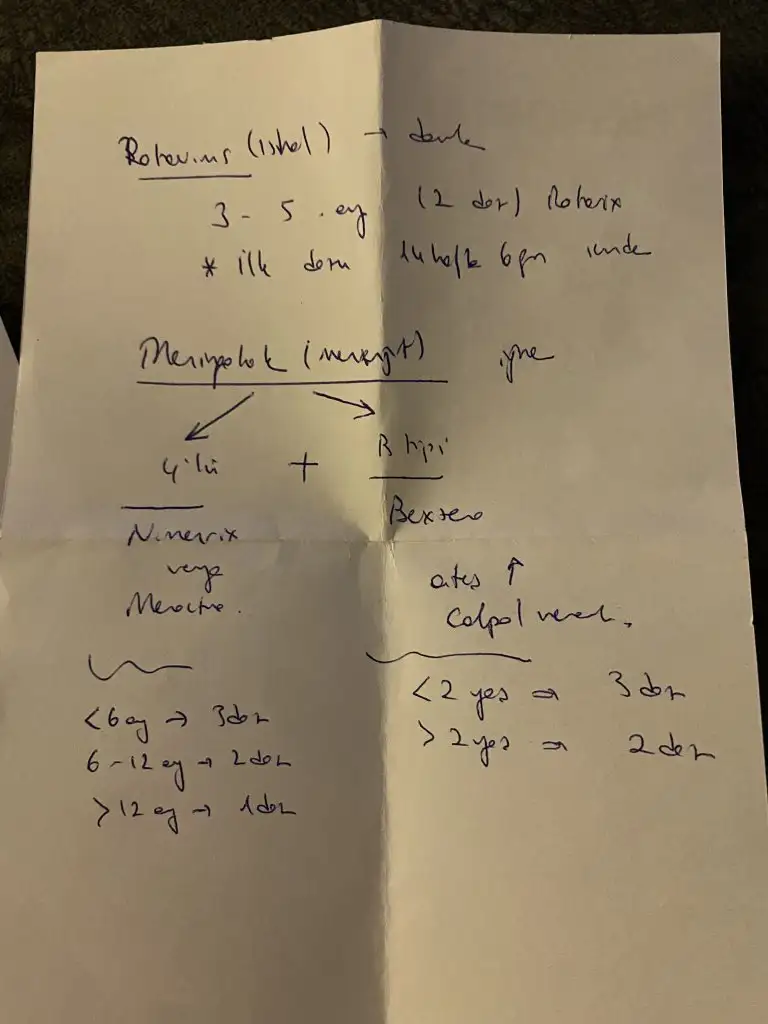 Rotavirus (ishal) → damla
3 - 5. ay (2 doz) Rotarix
* ilk dozu 14 hafta 6 gün içinde
Meningokok (menenjit) iğne
4'lü + B tipi
Nimenrix Bexsero
veya
Menactra.
ateş ↑
Calpol verelim.
<6 ay → 3 doz
6-12 ay → 2 doz
>12 ay → 1 doz
<2 yaş ⇒ 3 doz
>2 yaş ⇒ 2 doz